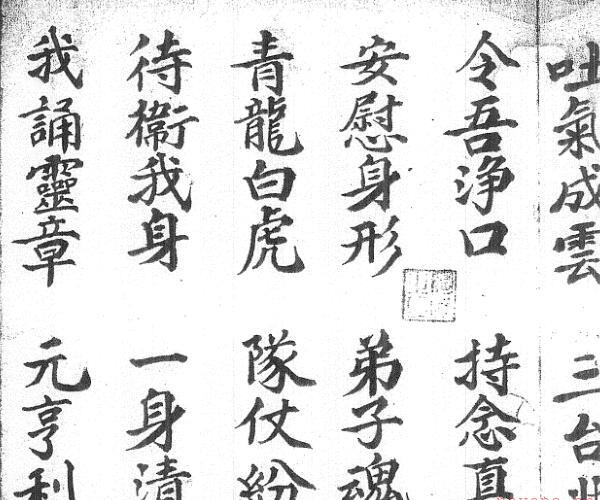 吐氣成雲 三台
令吾淨口 持念真
安慰身形 弟子魂
青龍白虎 隊仗紛
待衞我身 一身清
我誦靈章 元亨利